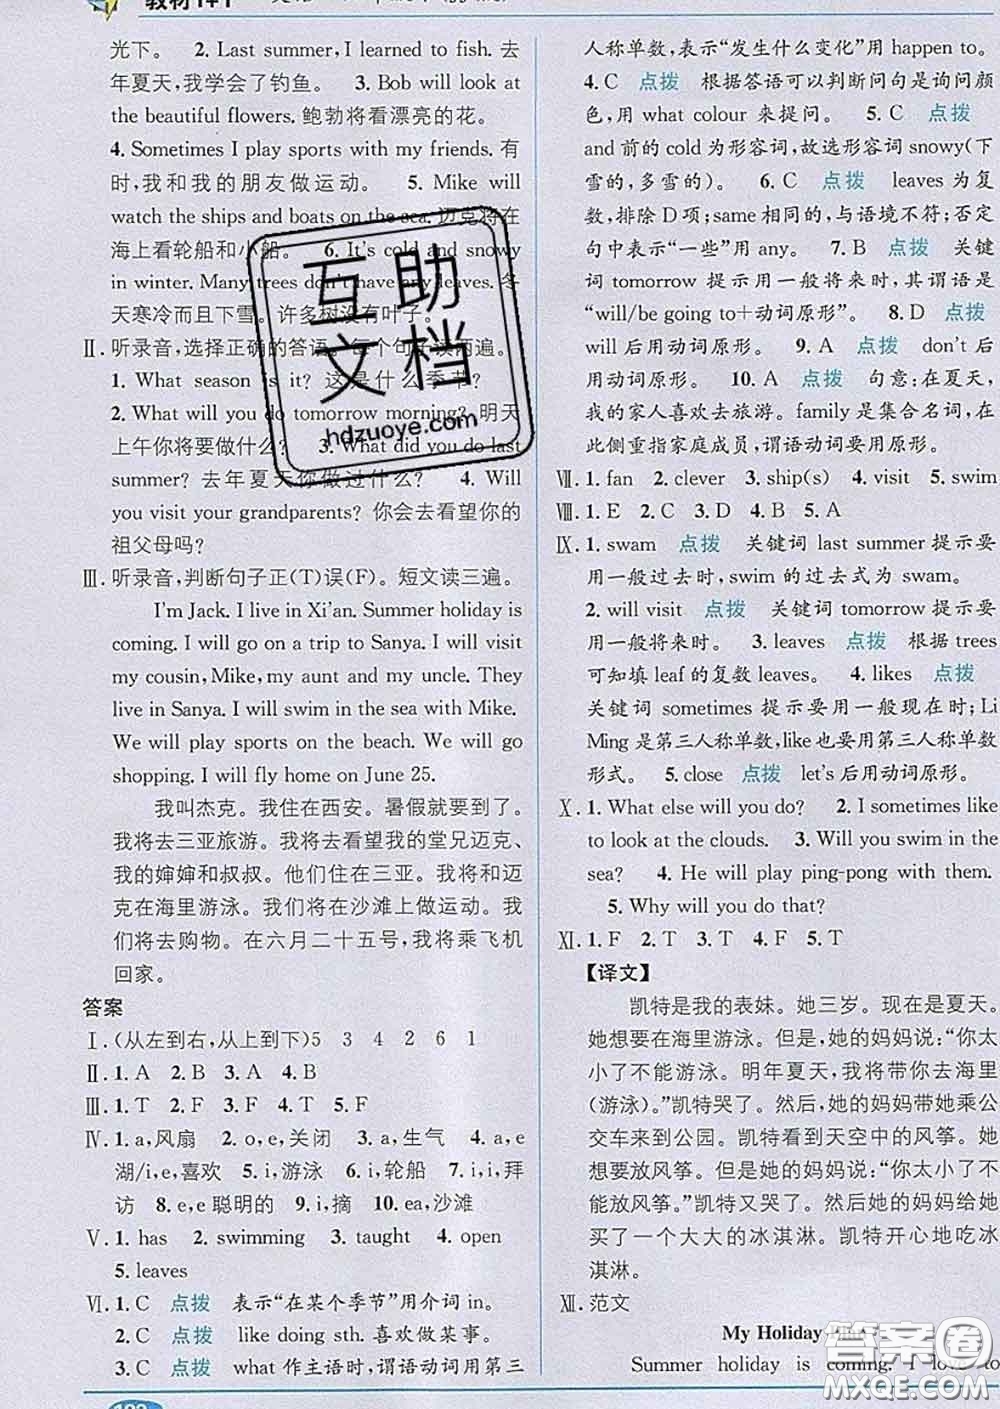 教材1+1
光下。 2. Last summer, I learned to fish. 去
年夏天,我学会了钓鱼。 3. Bob will look at
the beautiful flowers. 鲍勃将看漂亮的花。
4. Sometimes I play sports with my friends. 有
时,我和我的朋友做运动。 5. Mike will
watch the ships and boats on the sea. 迈克将在
海上看轮船和小船。 6. It's cold and snowy
in winter. Many trees don't have any leaves. 冬
天寒冷而且下雪。许多树没有叶子。
Ⅱ. 听录音,选择正确的答语。每个句子读两遍。
1. What season is it? 这是什么季节?
2. What will you do tomorrow morning? 明天
上午你将要做什么? 3. What did you do last
summer? 去年夏天你做过什么? 4. Will
you visit your grandparents? 你会去看望你的
祖父母吗?
Ⅲ. 听录音,判断句子正(T)误(F)。短文读三遍。
I'm Jack. I live in Xi'an. Summer holiday is
coming. I will go on a trip to Sanya. I will visit
my cousin, Mike, my aunt and my uncle. They
live in Sanya. I will swim in the sea with Mike.
We will play sports on the beach. We will go
shopping. I will fly home on June 25.
我叫杰克。我住在西安。暑假就要到了。
我将去三亚旅游。我将去看望我的堂兄迈克、
我的婶婶和叔叔。他们住在三亚。我将和迈
克在海里游泳。我们将在沙滩上做运动。我
们将去购物。在六月二十五号,我将乘飞机
回家。
答案
Ⅰ. (从左到右,从上到下)5 3 4 2 6 1
Ⅱ. 1. A 2. B 3. A 4. B
Ⅲ. 1. T 2. F 3. F 4. T 5. F
Ⅳ. 1. a,风扇 2. o,e,关闭 3. a,生气 4. a,e
湖/i,e,喜欢 5. i,游泳 6. i,轮船 7. i,i,拜
访 8. e,e 聪明的 9. i,摘 10. ea,沙滩
Ⅴ. 1. has 2. swimming 3. taught 4. open
5. leaves
Ⅵ. 1. C 点拨 表示“在某个季节”用介词 in。
2. C 点拨 like doing sth. 喜欢做某事。
3. C 点拨 what 作主语时,谓语动词用第三
人称单数,表示“发生什么变化”用 happen to。
4. C 点拨 根据答语可以判断问句是询问颜
色,用 what colour 来提问。 5. C 点拨
and 前的 cold 为形容词,故选形容词 snowy(下
雪的,多雪的)。 6. C 点拨 leaves 为复
数,排除 D 项;same 相同的,与语境不符;否定
句中表示“一些”用 any。 7. B 点拨 关键
词 tomorrow 提示用一般将来时,其谓语是
“will/be going to+动词原形”。 8. D 点拨
will 后用动词原形。 9. A 点拨 don't 后
用动词原形。 10. A 点拨 句意:在夏天,
我的家人喜欢去旅游。family 是集合名词,在
此侧重指家庭成员,谓语动词要用原形。
Ⅶ. 1. fan 2. clever 3. ship(s) 4. visit 5. swim
Ⅷ. 1. E 2. C 3. D 4. B 5. A
Ⅸ. 1. swam 点拨 关键词 last summer 提示要
用一般过去时,swim 的过去式为 swam。
2. will visit 点拨 关键词 tomorrow 提示要
用一般将来时。 3. leaves 点拨 根据 trees
可知填 leaf 的复数 leaves。 4. likes 点拨
关键词 sometimes 提示要用一般现在时;Li
Ming 是第三人称单数,like 也要用第三人称单数
形式。 5. close 点拨 let's 后用动词原形。
Ⅹ. 1. What else will you do? 2. I sometimes like
to look at the clouds. 3. Will you swim in the
sea? 4. He will play ping-pong with them.
5. Why will you do that?
Ⅺ. 1. F 2. T 3. T 4. F 5. T
【译文】
凯特是我的表妹。她三岁。现在是夏天。
她想要在海里游泳。但是,她的妈妈说:“你太
小了不能游泳。明年夏天,我将带你去海里
(游泳)。”凯特哭了。然后,她的妈妈带她乘公
交车来到公园。凯特看到天空中的风筝。她
想要放风筝。但是她的妈妈说:“你太小了不
能放风筝。”凯特又哭了。然后她的妈妈给她
买了一个大大的冰淇淋。凯特开心地吃冰
淇淋。
Ⅻ. 范文
My Holiday Plan
Summer holiday is coming. I love to
互助
文档
hdzuoye.com
答案圈
MXQE.COM